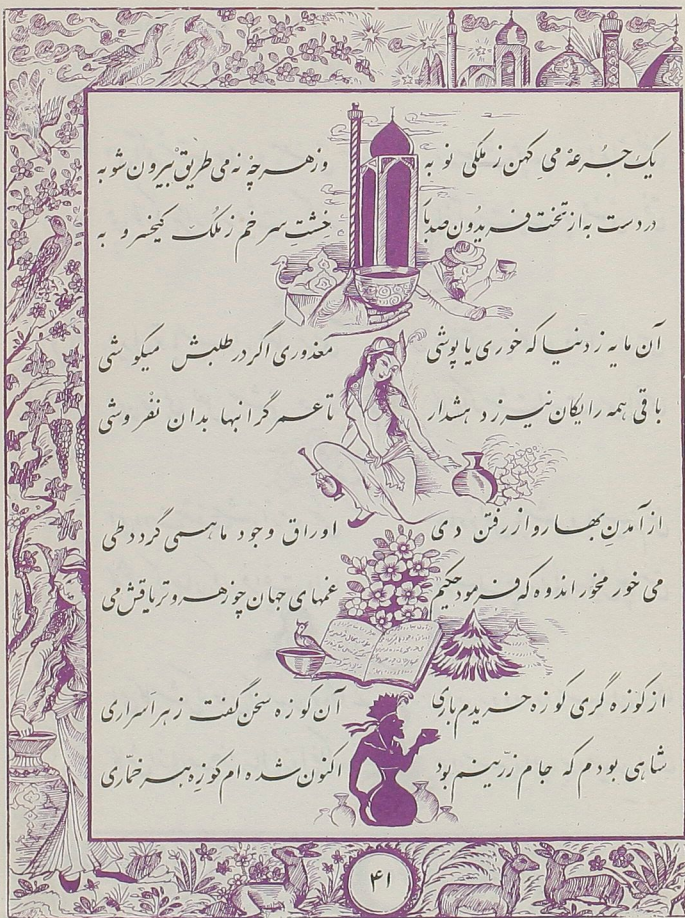 یک جرعهٔ می کهن ز ملکی نو به وز هر چه نه می طریق بیرون شو به
در دست به از تخت فریدون صد بار خشت سر خم ز ملک کیخسرو به
آن مایه ز دنیا که خوری یا پوشی معذوری اگر در طلبش میکوشی
باقی همه رایگان نیرزد هشدار تا عمر گرانبها بدان نفروشی
از آمدن بهار و از رفتن دی اوراق وجود ما همی گردد طی
می خور مخور اندوه که فرمود حکیم غمهای جهان چو زهر و تریاقش می
از کوزه گری کوزه خریدم باری آن کوزه سخن گفت ز هر اسراری
شاهی بودم که جام زرینم بود اکنون شده ام کوزه هر خماری
۴۱